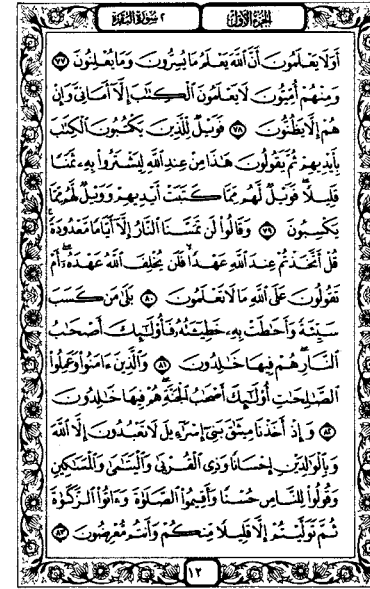 ٢ سورة البقرة الجزء الأول
أَوَلَا يَعْلَمُونَ أَنَّ ٱللَّهَ يَعْلَمُ مَا يُسِرُّونَ وَمَا يُعْلِنُونَ ٧٧
وَمِنْهُمْ أُمِّيُّونَ لَا يَعْلَمُونَ ٱلْكِتَٰبَ إِلَّآ أَمَانِىَّ وَإِنْ
هُمْ إِلَّا يَظُنُّونَ ٧٨ فَوَيْلٌ لِّلَّذِينَ يَكْتُبُونَ ٱلْكِتَٰبَ
بِأَيْدِيهِمْ ثُمَّ يَقُولُونَ هَٰذَا مِنْ عِندِ ٱللَّهِ لِيَشْتَرُوا۟ بِهِۦ ثَمَنًا
قَلِيلًا ۖ فَوَيْلٌ لَّهُم مِّمَّا كَتَبَتْ أَيْدِيهِمْ وَوَيْلٌ لَّهُم مِّمَّا
يَكْسِبُونَ ٧٩ وَقَالُوا۟ لَن تَمَسَّنَا ٱلنَّارُ إِلَّآ أَيَّامًا مَّعْدُودَةً ۚ
قُلْ أَتَّخَذْتُمْ عِندَ ٱللَّهِ عَهْدًا فَلَن يُخْلِفَ ٱللَّهُ عَهْدَهُۥٓ ۖ أَمْ
تَقُولُونَ عَلَى ٱللَّهِ مَا لَا تَعْلَمُونَ ٨٠ بَلَىٰ مَن كَسَبَ
سَيِّئَةً وَأَحَٰطَتْ بِهِۦ خَطِيٓـَٔتُهُۥ فَأُو۟لَٰٓئِكَ أَصْحَٰبُ
ٱلنَّارِ ۖ هُمْ فِيهَا خَٰلِدُونَ ٨١ وَٱلَّذِينَ ءَامَنُوا۟ وَعَمِلُوا۟
ٱلصَّٰلِحَٰتِ أُو۟لَٰٓئِكَ أَصْحَٰبُ ٱلْجَنَّةِ ۖ هُمْ فِيهَا خَٰلِدُونَ
٨٢ وَإِذْ أَخَذْنَا مِيثَٰقَ بَنِىٓ إِسْرَٰٓءِيلَ لَا تَعْبُدُونَ إِلَّا ٱللَّهَ
وَبِٱلْوَٰلِدَيْنِ إِحْسَانًا وَذِى ٱلْقُرْبَىٰ وَٱلْيَتَٰمَىٰ وَٱلْمَسَٰكِينِ
وَقُولُوا۟ لِلنَّاسِ حُسْنًا وَأَقِيمُوا۟ ٱلصَّلَوٰةَ وَءَاتُوا۟ ٱلزَّكَوٰةَ
ثُمَّ تَوَلَّيْتُمْ إِلَّا قَلِيلًا مِّنكُمْ وَأَنتُم مُّعْرِضُونَ ٨٣
١٢